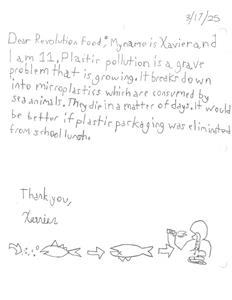 3/17/25
Dear Revolution Food, My name is Xavier and
I am 11. Plaitic pollution is a grave
problem that is growing. It breaks down
into microplastics which are consumed by
sea animals. They die in a matter of days. It would
be better if plastic packaging was eliminated
from school lunch.
Thank you,
Xavier